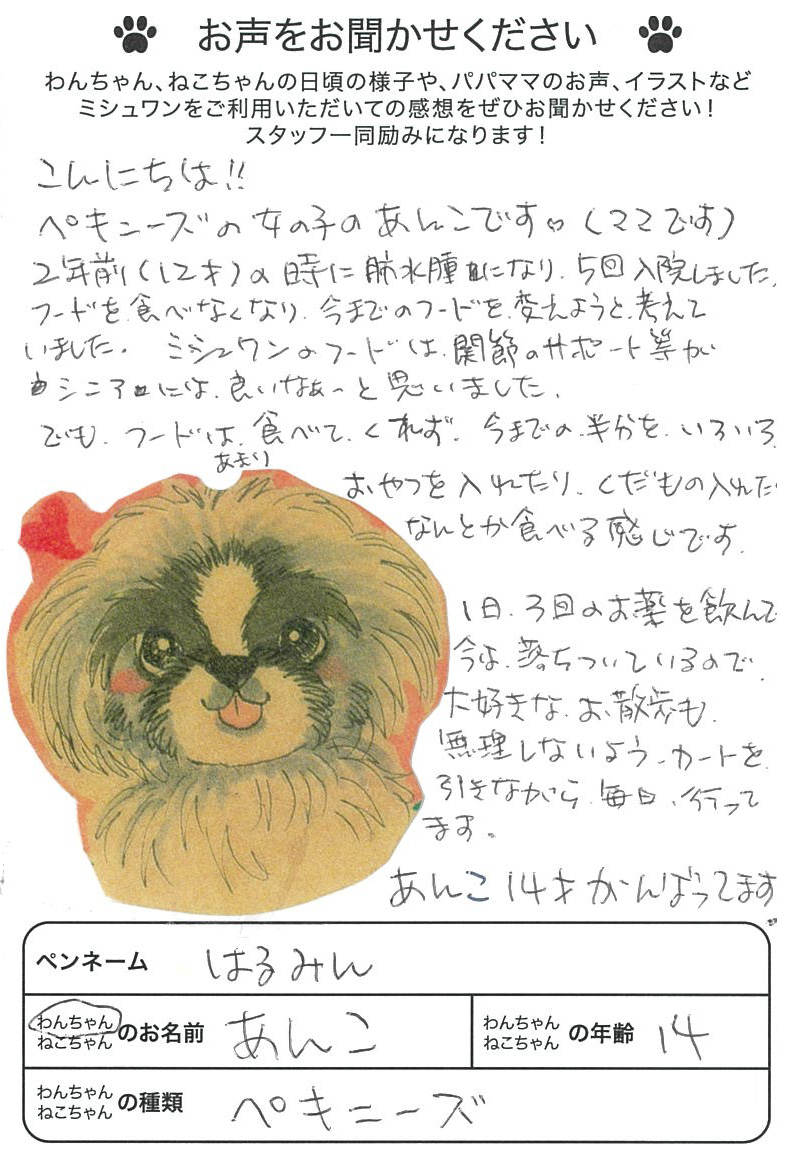 お声をお聞かせください
わんちゃん、ねこちゃんの日頃の様子や、パパママのお声、イラストなど
ミシュワンをご利用いただいての感想をぜひお聞かせください！
スタッフ一同励みになります！
こんにちは!!
ペキニーズの女の子のあんこです♡（ママです）
2年前（12才）の時に肺水腫になり、5回入院しました。
フードを食べなくなり、今までのフードを変えようと考えて
いました。ミシュワンのフードは、関節のサポート等が
シニアには、良いなぁーと思いました。
でも、フードは、食べて、くれず、今までの半分を、いろいろ
あまり
おやつを入れたり、くだもの入れた
なんとか食べる感じです。
1日、3回のお薬を飲んで
今は、落ちついているので、
大好きな、お散歩も、
無理しないよう、カートを
引きながら、毎日、行って
ます。
あんこ14才がんばってます
ペンネーム はるみん
わんちゃん ねこちゃん のお名前 あんこ
わんちゃん ねこちゃん の年齢 14
わんちゃん ねこちゃん の種類 ペキニーズ